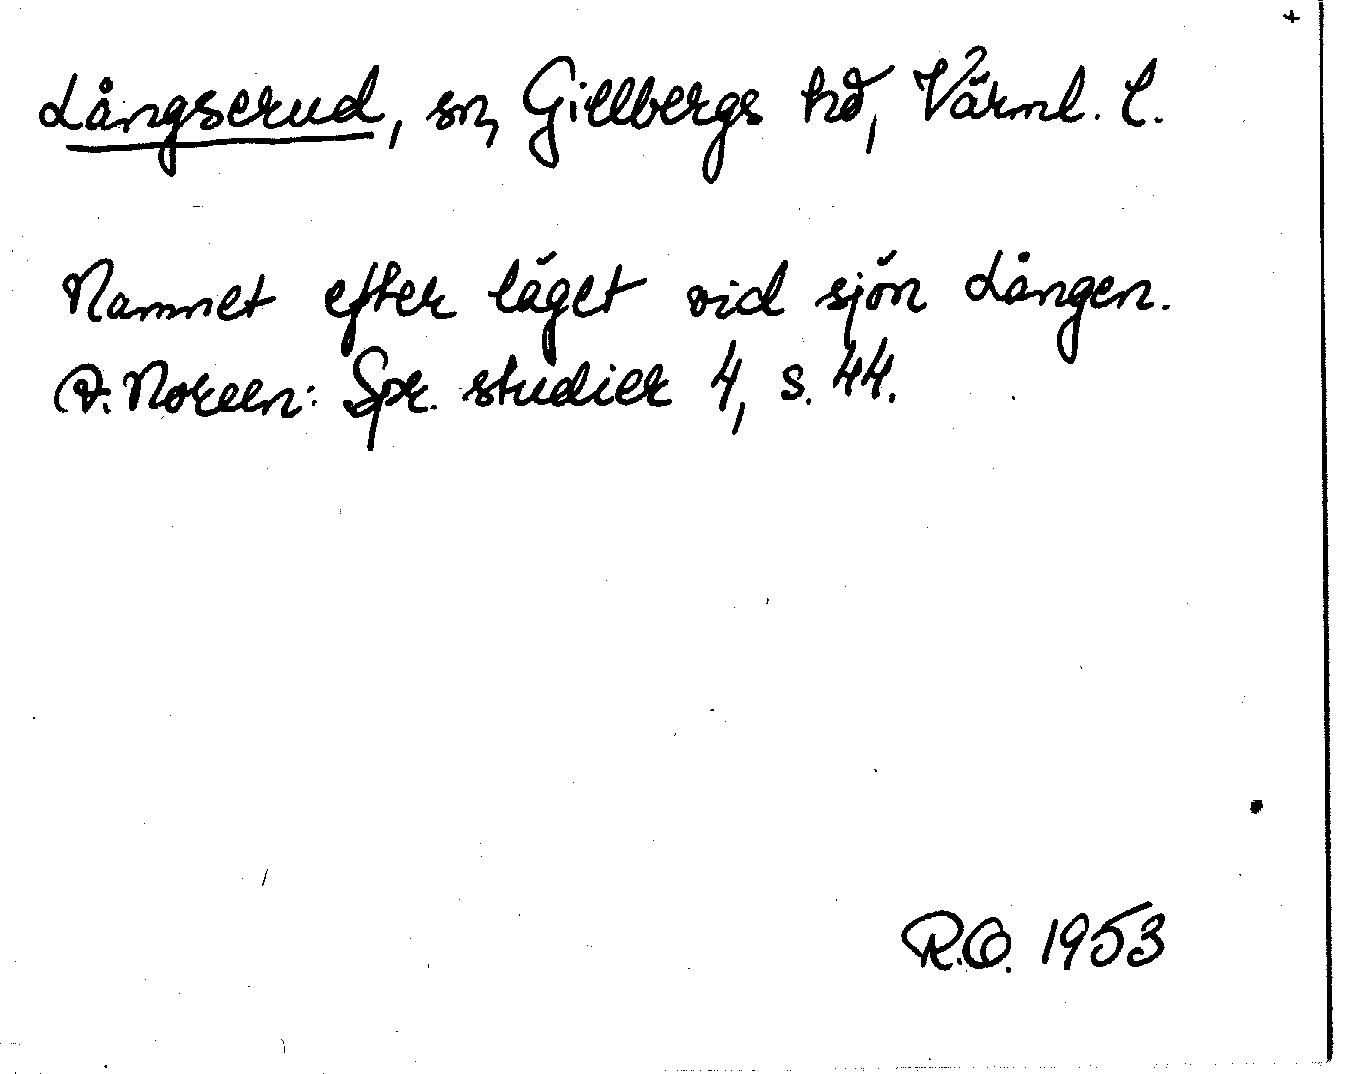 Långserud, sn, Gillbergs hd, Värml. l.
Namnet efter läget vid sjön Lången.
A. Noreen: Spr. studier 4, s. 44.
R.O. 1953